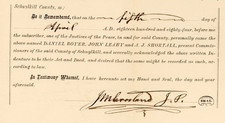 Schuylkill County, ss:
Be it Remembered, that on the fifth day of
April A. D., eighteen hundred and eighty four, before me
the subscriber, one of the Justices of the Peace, in and for said County, personally came the
above named DANIEL BOYER, JOHN LEAHY and J. SHORTALL, present Commissioners
of the said County of Schuylkill, and severally acknowledged the above written Indenture
to be their Act and Deed, and desired that the same might be recorded as such, according to law.
In Testimony Whereof, I have hereunto set my Hand and Seal, the day and year
aforesaid.
J. P.
SEAL